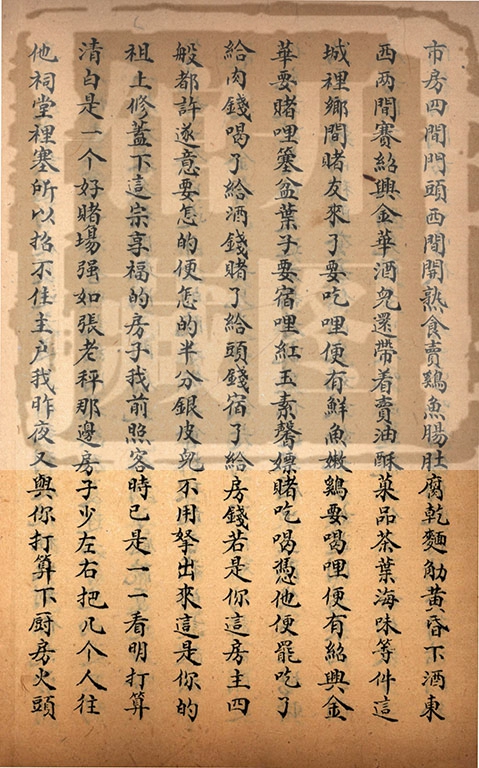 市房四間門頭西間開熟食賣鷄魚腸肚腐乾麵觔黃昏下酒東
西两間賽紹興金華酒皃還帶着賣油酥菓品茶葉海味等件這
城裡鄉間賭友來了要吃哩便有鮮魚嫩鷄要喝哩便有紹興金
華要賭哩簺盆葉子要宿哩紅玉素馨嫖賭吃喝憑他便罷吃了
給肉錢喝了給酒錢賭了給頭錢宿了給房錢若是你這房主四
般都許遂意要怎的便怎的半分銀皮皃不用拏出來這是你的
祖上修蓋下這宗享福的房子我前照客時已是一一看明打算
清白是一个好賭場强如張老秤那邊房子少左右把几个人往
他祠堂裡塞所以招不住主户我昨夜又與你打算下厨房火頭